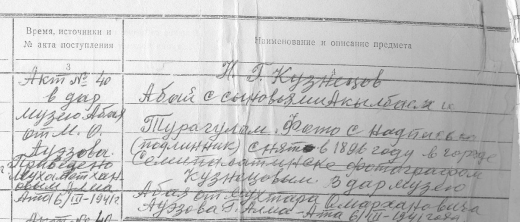 Время, источники и
№ акта поступления
Наименование и описание предмета
3
Акт № 40
в дар
музею Абая
от М. О.
Ауэзова.
Ата 6/III-1941г.
Акт № 40
Н. Г. Кузнецов
Абай с сыновьями Акылбай и
Турагулом. Фото с надписью
(подлинник) снято в 1896 году в городе
Семипалатинске фотографом
Кузнецовым. В дар музею
Абая от Мухтара Омархановича
Ауэзова г. Алма-Ата 6/III-1941 года